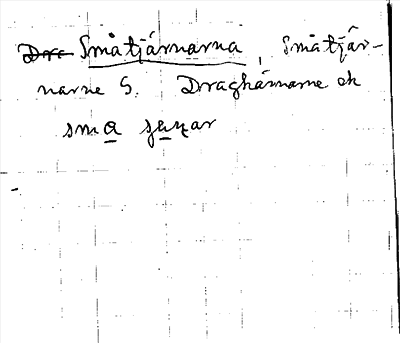 Småtjärnarna, Småtjär-
narne S. Draghärnarne ek
sma